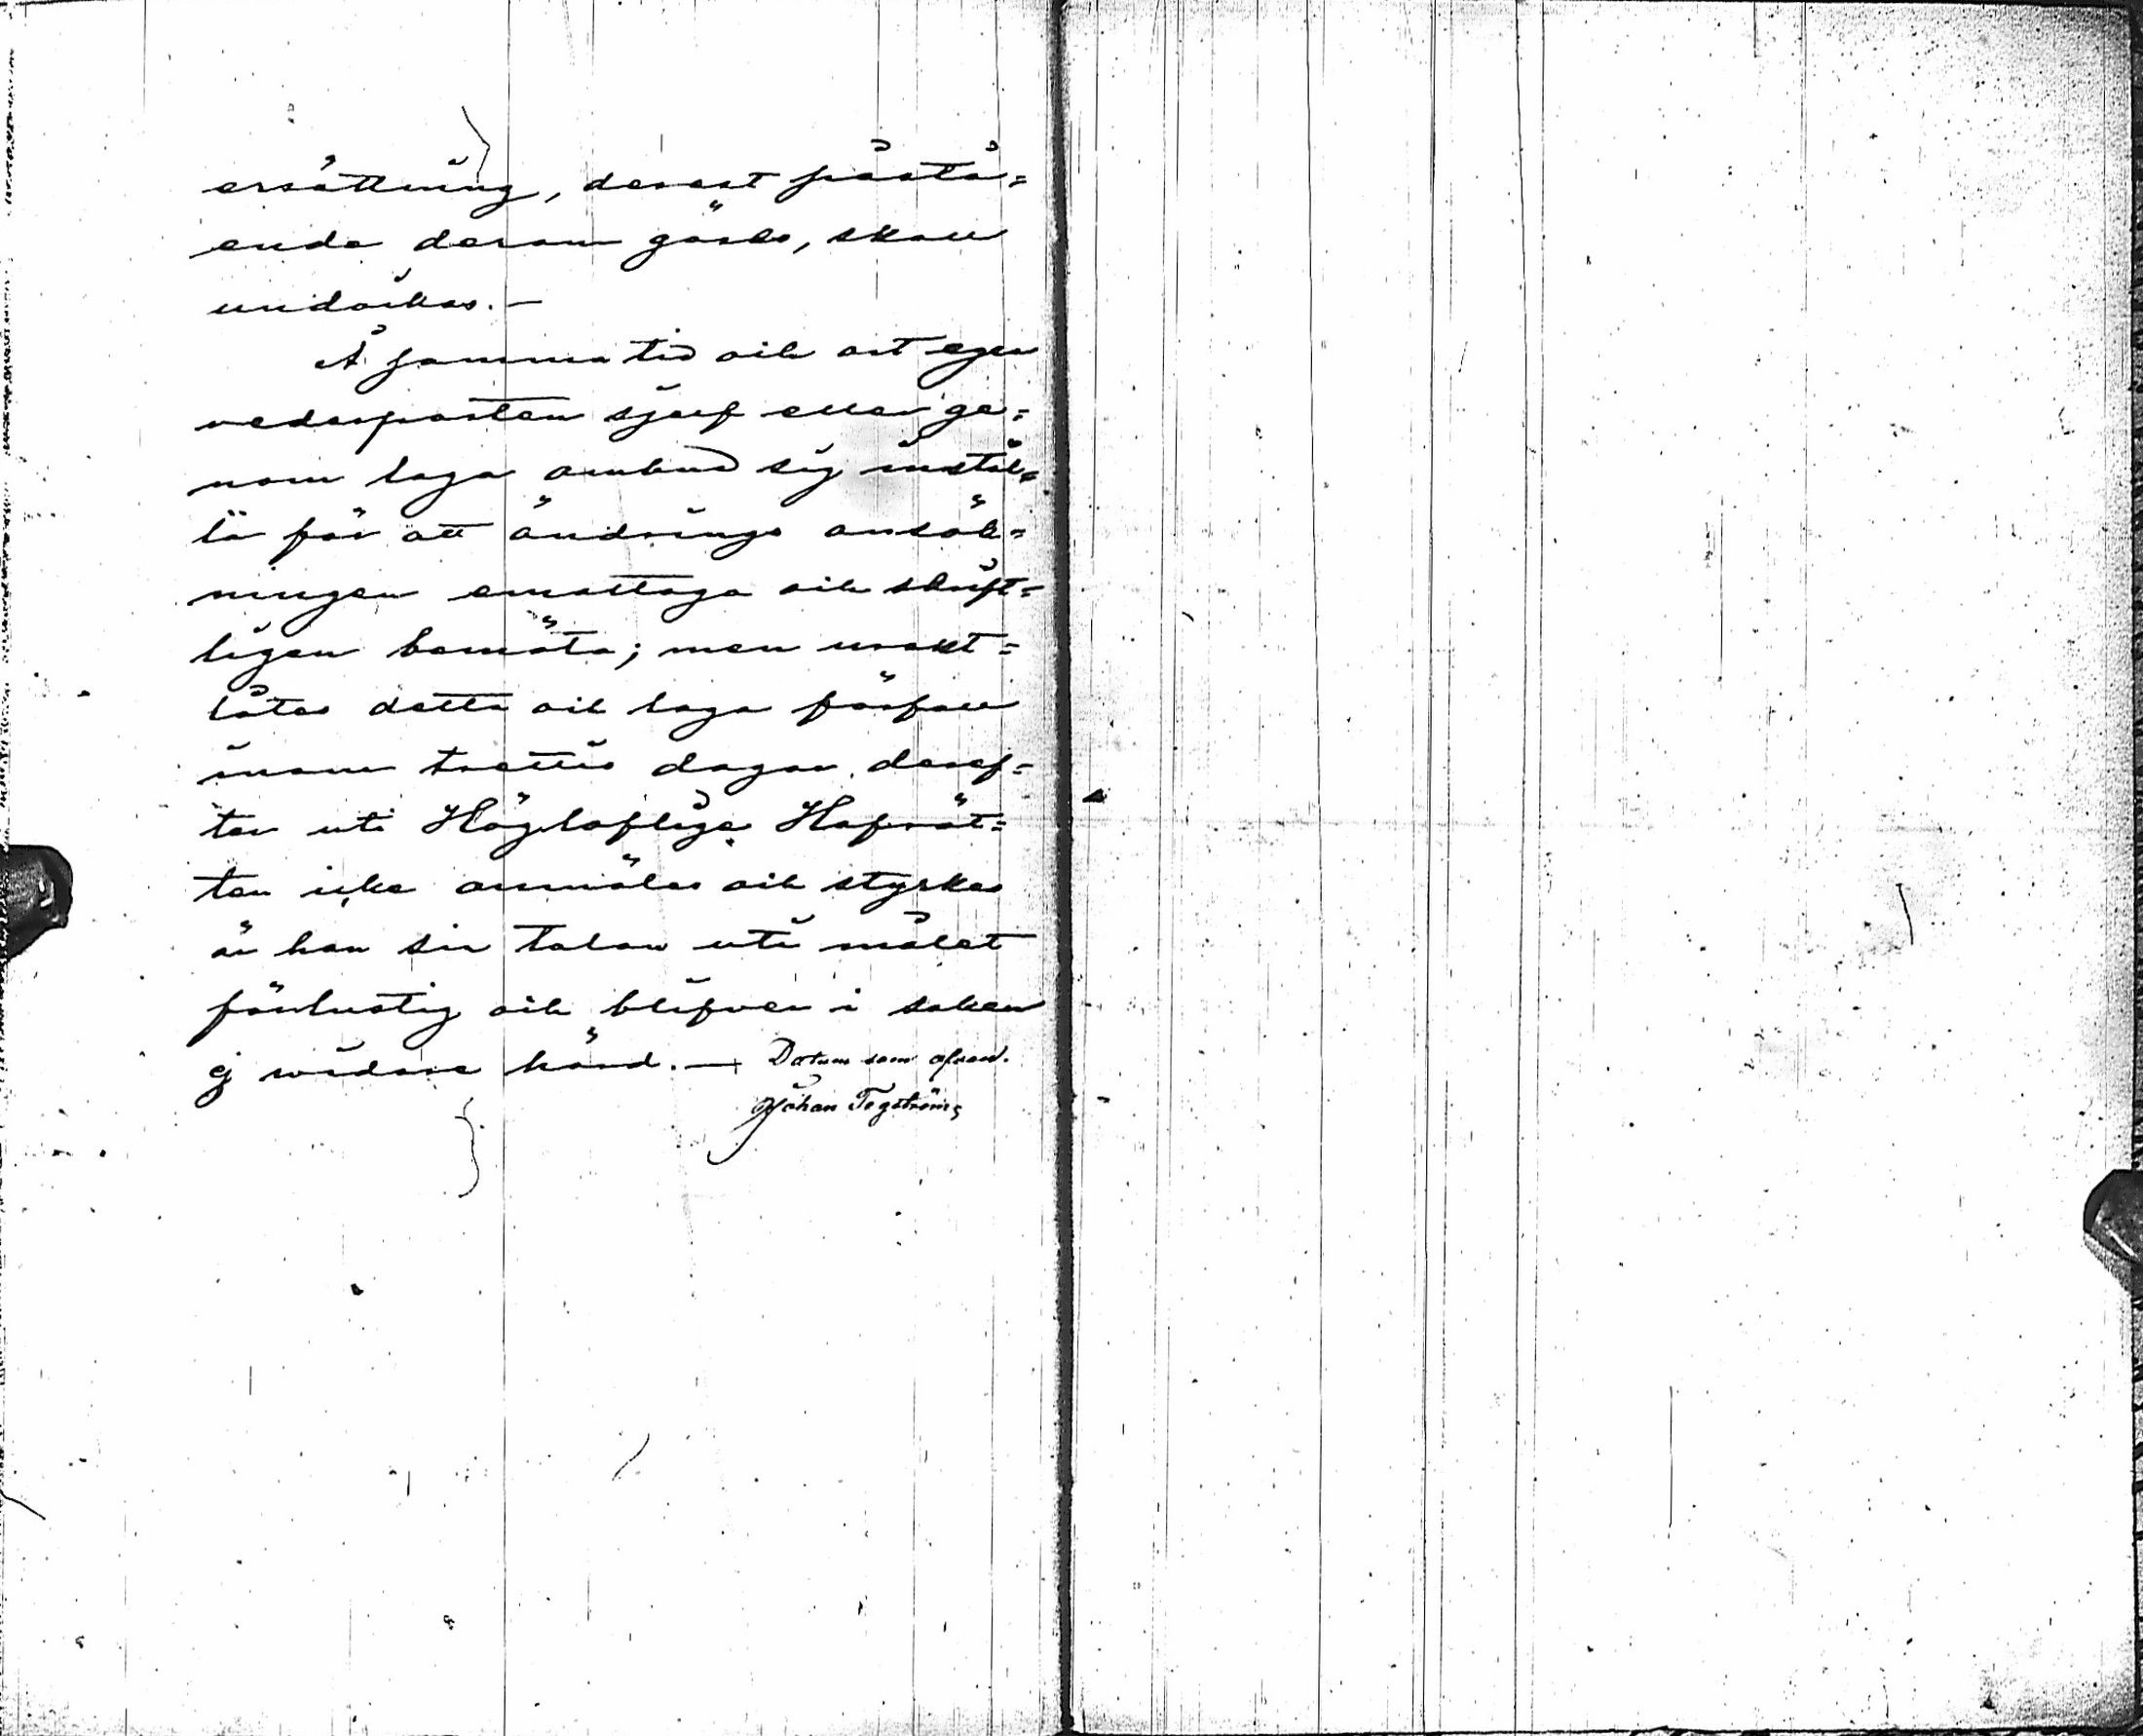 ersättning, derest påstå=
ende derom görls, skall
undvikas.—
Å samma tid och ort eger
vederparten sjelf eller ge=
nom laga ombud sig instäl=
la för att ändrings ansök=
ningen emottaga och skrift=
ligen bemöta; men urakt=
låtes detta och laga förfall
inom trettio dagar deref=
ter uti Högloflige Hofrät=
ten icke anmäles och styrkes
är han sin talan uti målet
förlustig och blifver i saken
ej widare hörd.— Datum som ofvan.
Johan Tegström,